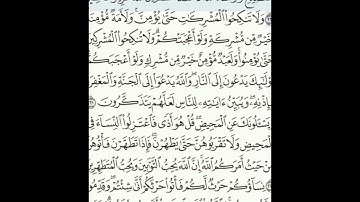 وَلَا تَنكِحُوا۟ ٱلْمُشْرِكَٰتِ حَتَّىٰ يُؤْمِنَّ ۚ وَلَأَمَةٌ مُّؤْمِنَةٌ
خَيْرٌ مِّن مُّشْرِكَةٍ وَلَوْ أَعْجَبَتْكُمْ ۗ وَلَا تُنكِحُوا۟ ٱلْمُشْرِكِينَ
حَتَّىٰ يُؤْمِنُوا۟ ۚ وَلَعَبْدٌ مُّؤْمِنٌ خَيْرٌ مِّن مُّشْرِكٍ وَلَوْ أَعْجَبَكُمْ
أُو۟لَٰٓئِكَ يَدْعُونَ إِلَى ٱلنَّارِ ۖ وَٱللَّهُ يَدْعُوٓا۟ إِلَى ٱلْجَنَّةِ وَٱلْمَغْفِرَةِ
بِإِذْنِهِۦ ۖ وَيُبَيِّنُ ءَايَٰتِهِۦ لِلنَّاسِ لَعَلَّهُمْ يَتَذَكَّرُونَ
وَيَسْـَٔلُونَكَ عَنِ ٱلْمَحِيضِ ۖ قُلْ هُوَ أَذًى فَٱعْتَزِلُوا۟ ٱلنِّسَآءَ فِى
ٱلْمَحِيضِ ۖ وَلَا تَقْرَبُوهُنَّ حَتَّىٰ يَطْهُرْنَ ۖ فَإِذَا تَطَهَّرْنَ فَأْتُوهُنَّ
مِنْ حَيْثُ أَمَرَكُمُ ٱللَّهُ ۚ إِنَّ ٱللَّهَ يُحِبُّ ٱلتَّوَّٰبِينَ وَيُحِبُّ ٱلْمُتَطَهِّرِينَ
نِسَآؤُكُمْ حَرْثٌ لَّكُمْ فَأْتُوا۟ حَرْثَكُمْ أَنَّىٰ شِئْتُمْ ۖ وَقَدِّمُوا۟